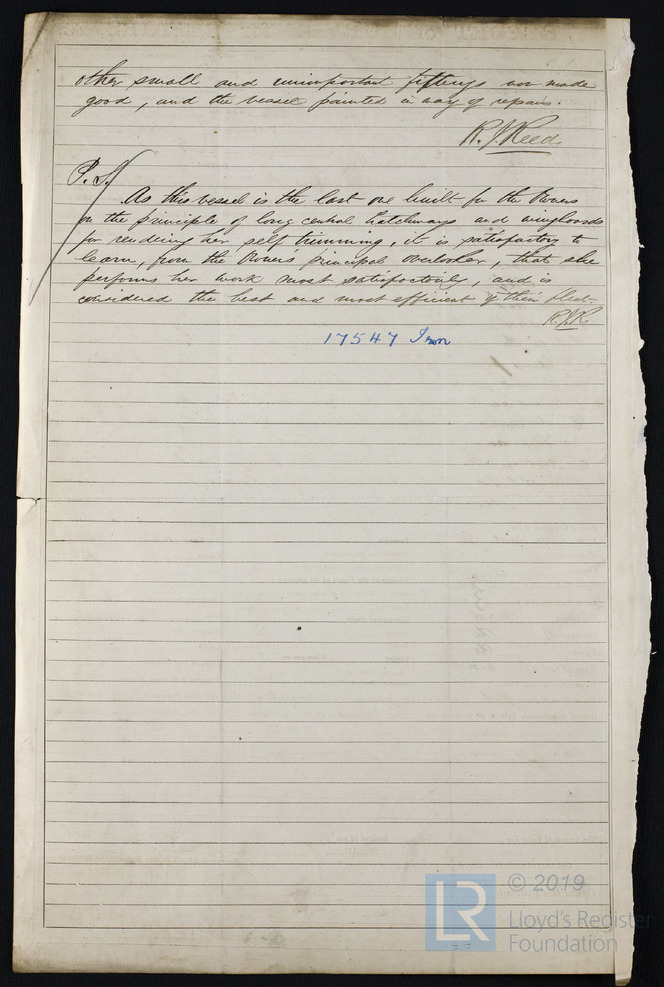 other small and unimportant fittings now made
good, and the vessel painted in way of repairs.
R. J. Reed
P.S.
As this vessel is the last one built for the Owners
on the principle of long central hatchways and wingboards
for rendering her self trimming, it is satisfactory to
learn, from the Owners principal overlooker, that she
performs her work most satisfactorily, and is
considered the best and most efficient of their fleet.
R.J.R.
17547 Iron
LR
© 2019
Lloyd's Register
Foundation